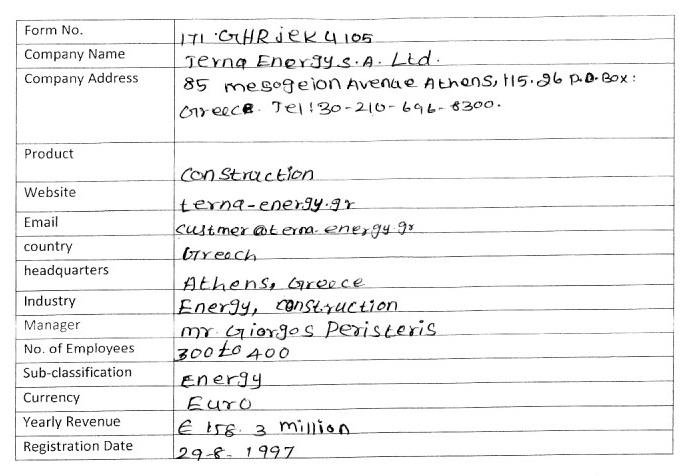 Form No. 171.GHRjek4105
Company Name Terna Energy S.A. Ltd.
Company Address 85 mesogeion Avenue Athens, 115.26 P.O.Box:
Greece. Tel:30-210-696-8300.
Product Construction
Website terna-energy.gr
Email custmer@terna.energy.gr
country Greech
headquarters Athens, Greece
Industry Energy, construction
Manager mr. Giorgos Peristeris
No. of Employees 300 to 400
Sub-classification Energy
Currency Euro
Yearly Revenue € 158.3 million
Registration Date 29-8-1997